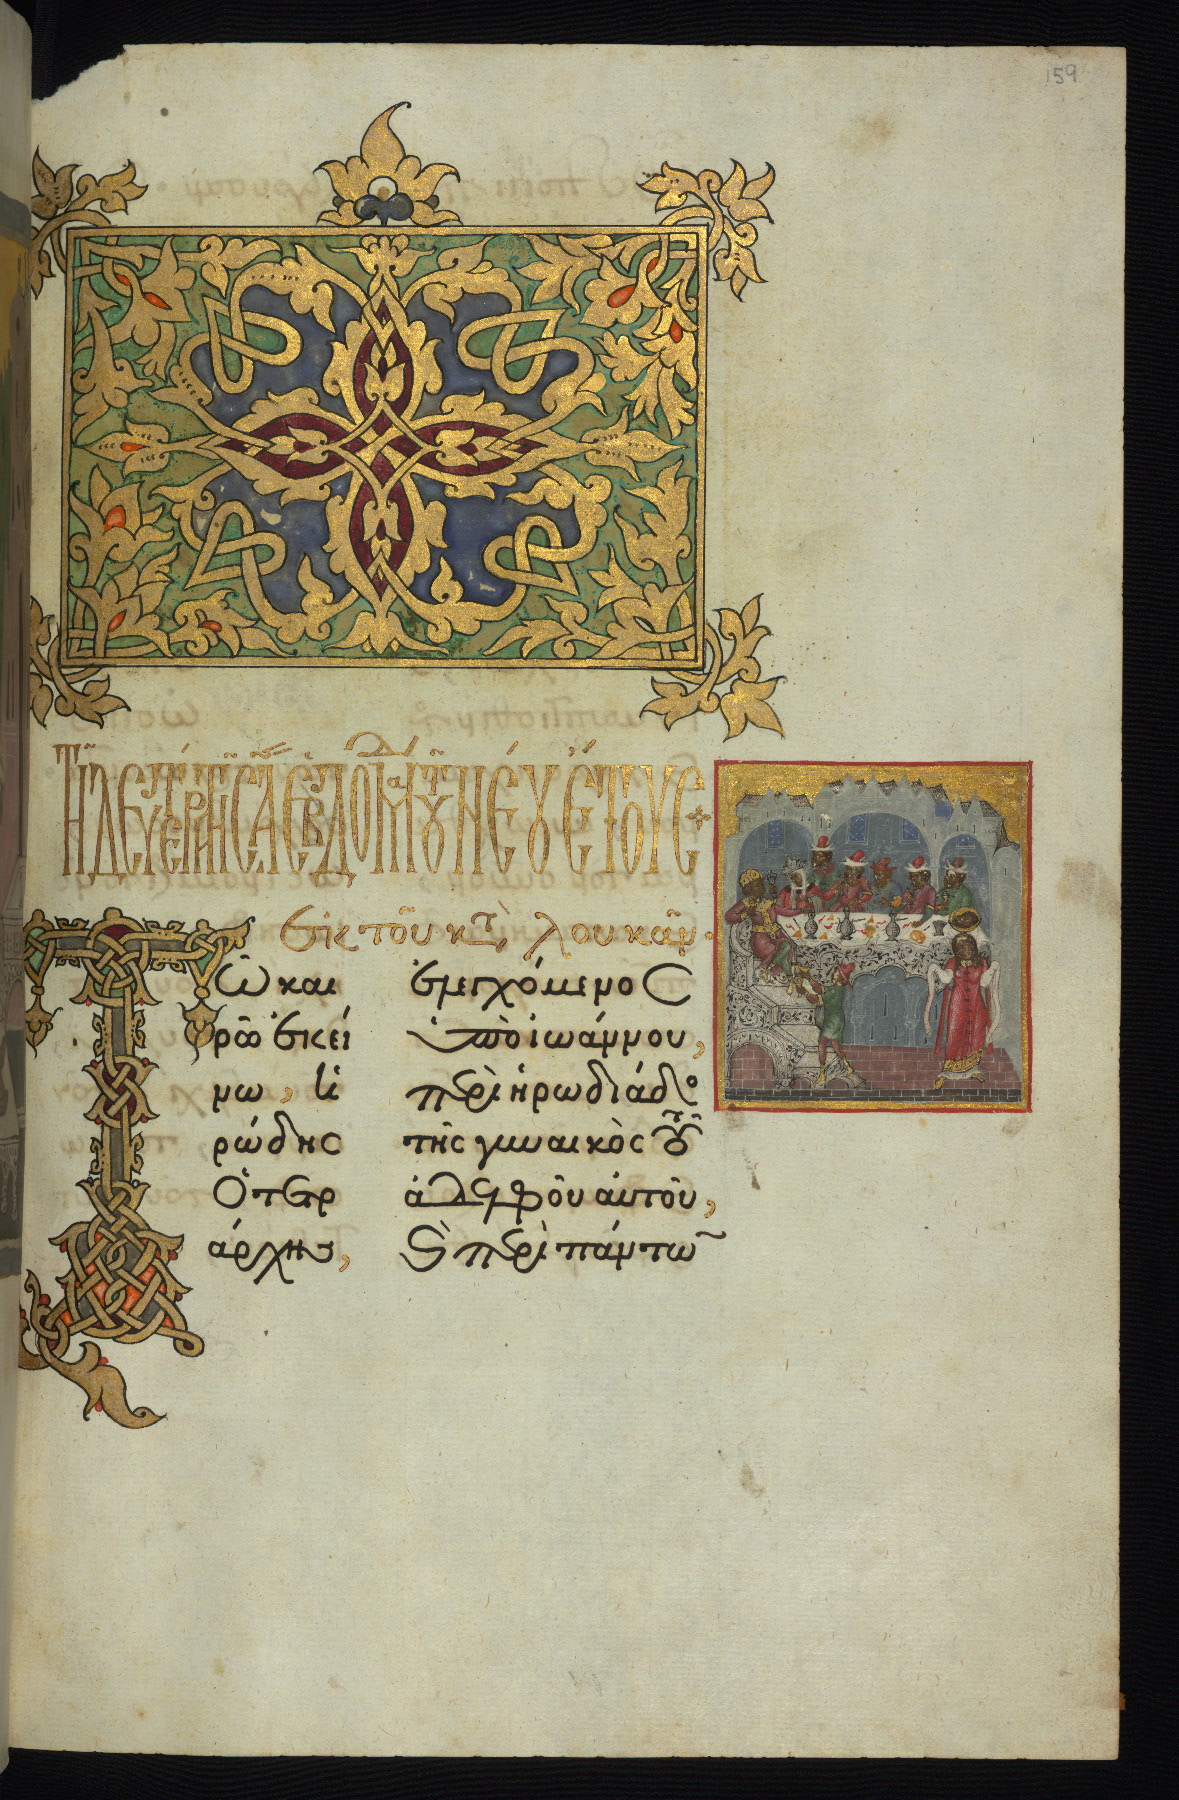 159
Τῇ δευτέρᾳ τῆς α ἑβδομάδ τοῦ νέου ἔτους
ἐκ τοῦ κατ λουκᾶν.
Τῶ και
ρῶ ἐκεί
νω, ἡ
ρώδης
ὁ τετρ
άρχης,
ἐλεγχόμενος
ὑπὸ ἰωάννου,
περὶ ἡρωδιάδος
τῆς γυναικὸς τοῦ
ἀδελφοῦ αὐτοῦ,
καὶ περὶ πάντων